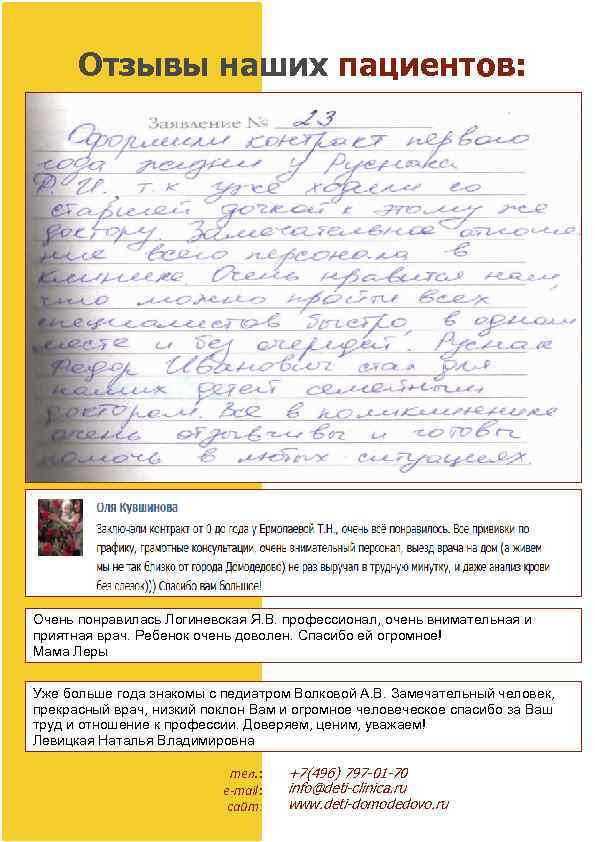 Отзывы наших пациентов:
Заявление № 23
Оформили контракт первого
года жизни у Руснака
Ф.И., т.к уже ходили со
старшей дочкой к этому же
доктору. Замечательное отноше-
ние всего персонала в
клинике. Очень нравится нам,
что можно пройти всех
специалистов быстро, в одном
месте и без очередей. Руснак
Федор Иванович стал для
наших детей семейным
доктором. Все в поликлинике
очень отзывчивы и готовы
помочь в любых ситуациях.
Оля Кувшинова
Заключали контракт от 0 до года у Ермолаевой Т.Н., очень всё понравилось. Все прививки по
графику, грамотные консультации, очень внимательный персонал, выезд врача на дом (а живем
мы не так близко от города Домодедово) не раз выручал в трудную минутку, и даже анализ крови
без слезок))) Спасибо вам большое!
Очень понравилась Логиневская Я.В. профессионал, очень внимательная и
приятная врач. Ребенок очень доволен. Спасибо ей огромное!
Мама Леры
Уже больше года знакомы с педиатром Волковой А.В. Замечательный человек,
прекрасный врач, низкий поклон Вам и огромное человеческое спасибо за Ваш
труд и отношение к профессии. Доверяем, ценим, уважаем!
Левицкая Наталья Владимировна
тел.: +7(496) 797-01-70
e-mail: info@deti-clinica.ru
сайт: www.deti-domodedovo.ru